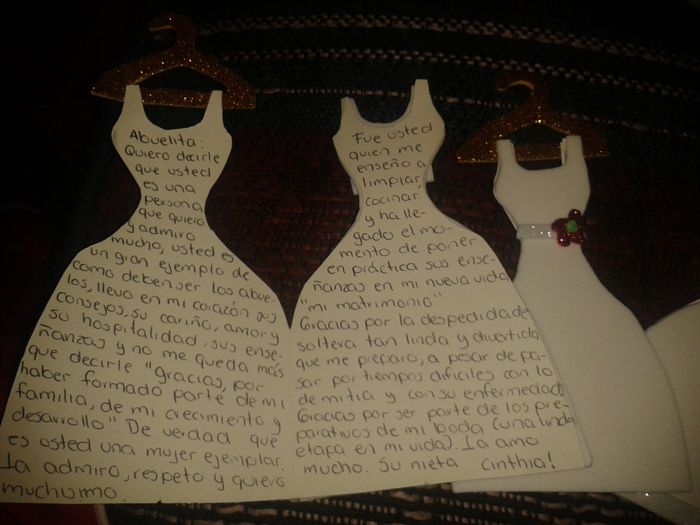 Abuelita:
Quiero decirle
que usted
es una
persona
que quiero
y admiro
mucho, usted es
un gran ejemplo de
como deben ser los abue-
los, llevo en mi corazón sus
consejos, su cariño, amor y
su hospitalidad, sus ense-
ñanzas y no me queda más
que decirle "gracias, por
haber formado parte de mi
familia, de mi crecimiento y
desarrollo". De verdad que
es usted una mujer ejemplar.
La admiro, respeto y quiero
muchomo.
Fue usted
quien me
enseño a
limpiar,
cocinar
y ha lle-
gado el mo-
mento de poner
en práctica sus ense-
ñanzas en mi nueva vida
"mi matrimonio"
Gracias por la despedida de
soltera tan linda y divertida
que me preparo, a pesar de pa-
sar por tiempos dificiles con lo
de mi tia y con su enfermedad.
Gracias por ser parte de los pre-
parativos de mi boda (una linda
etapa en mi vida). La amo
mucho. Su nieta Cinthia!